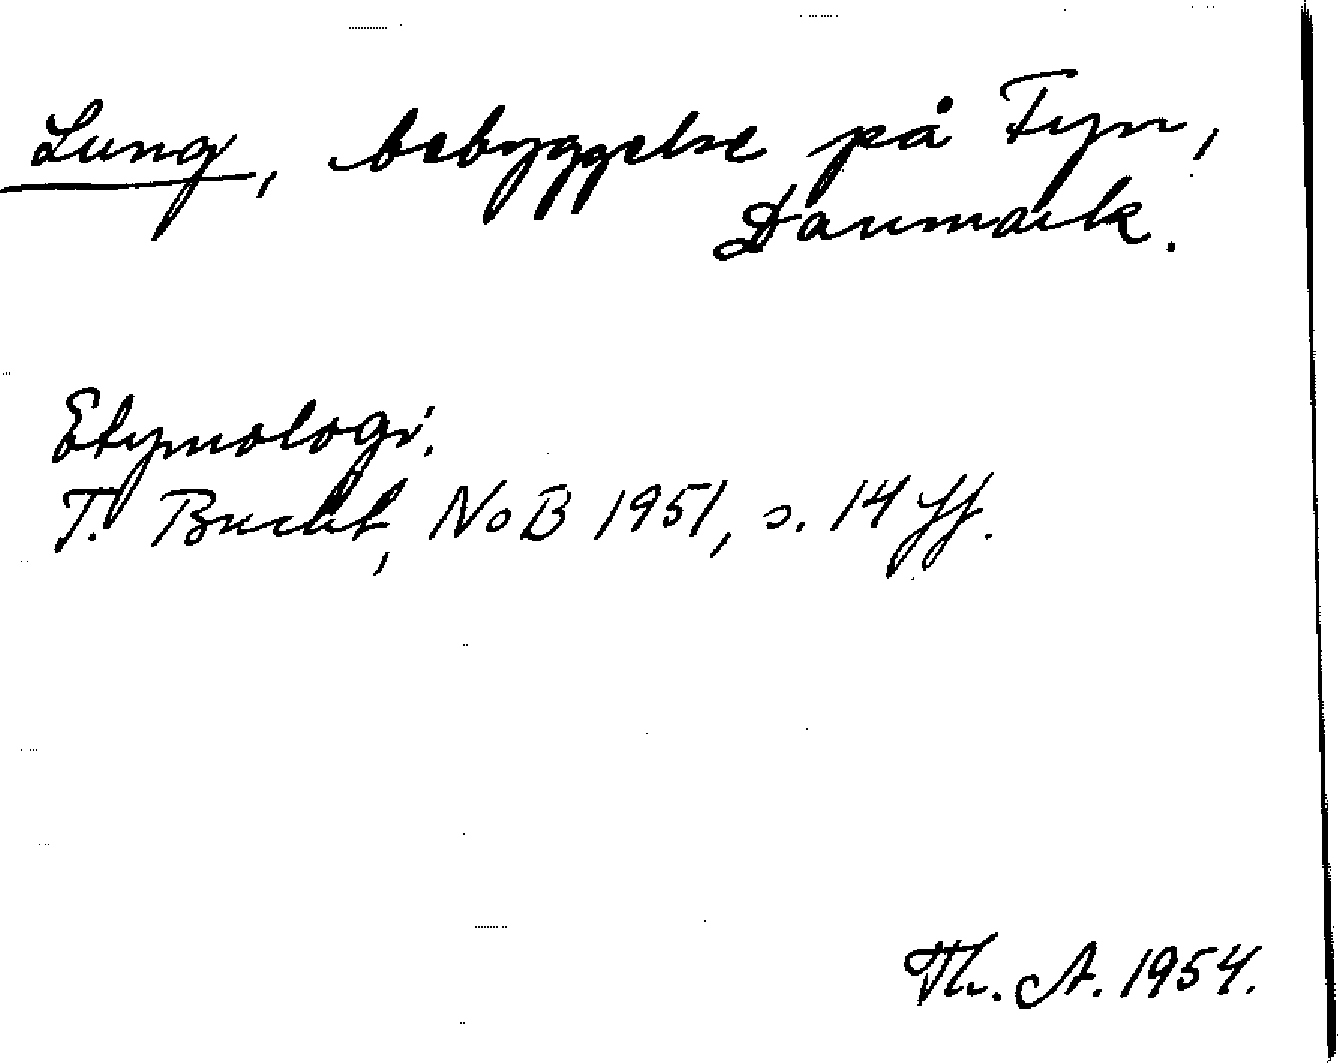 Lung, bebyggelse på Fyn,
Danmark.
Etymologi.
T. Bucht, NoB 1951, s. 14 ff.
Th. A. 1954.